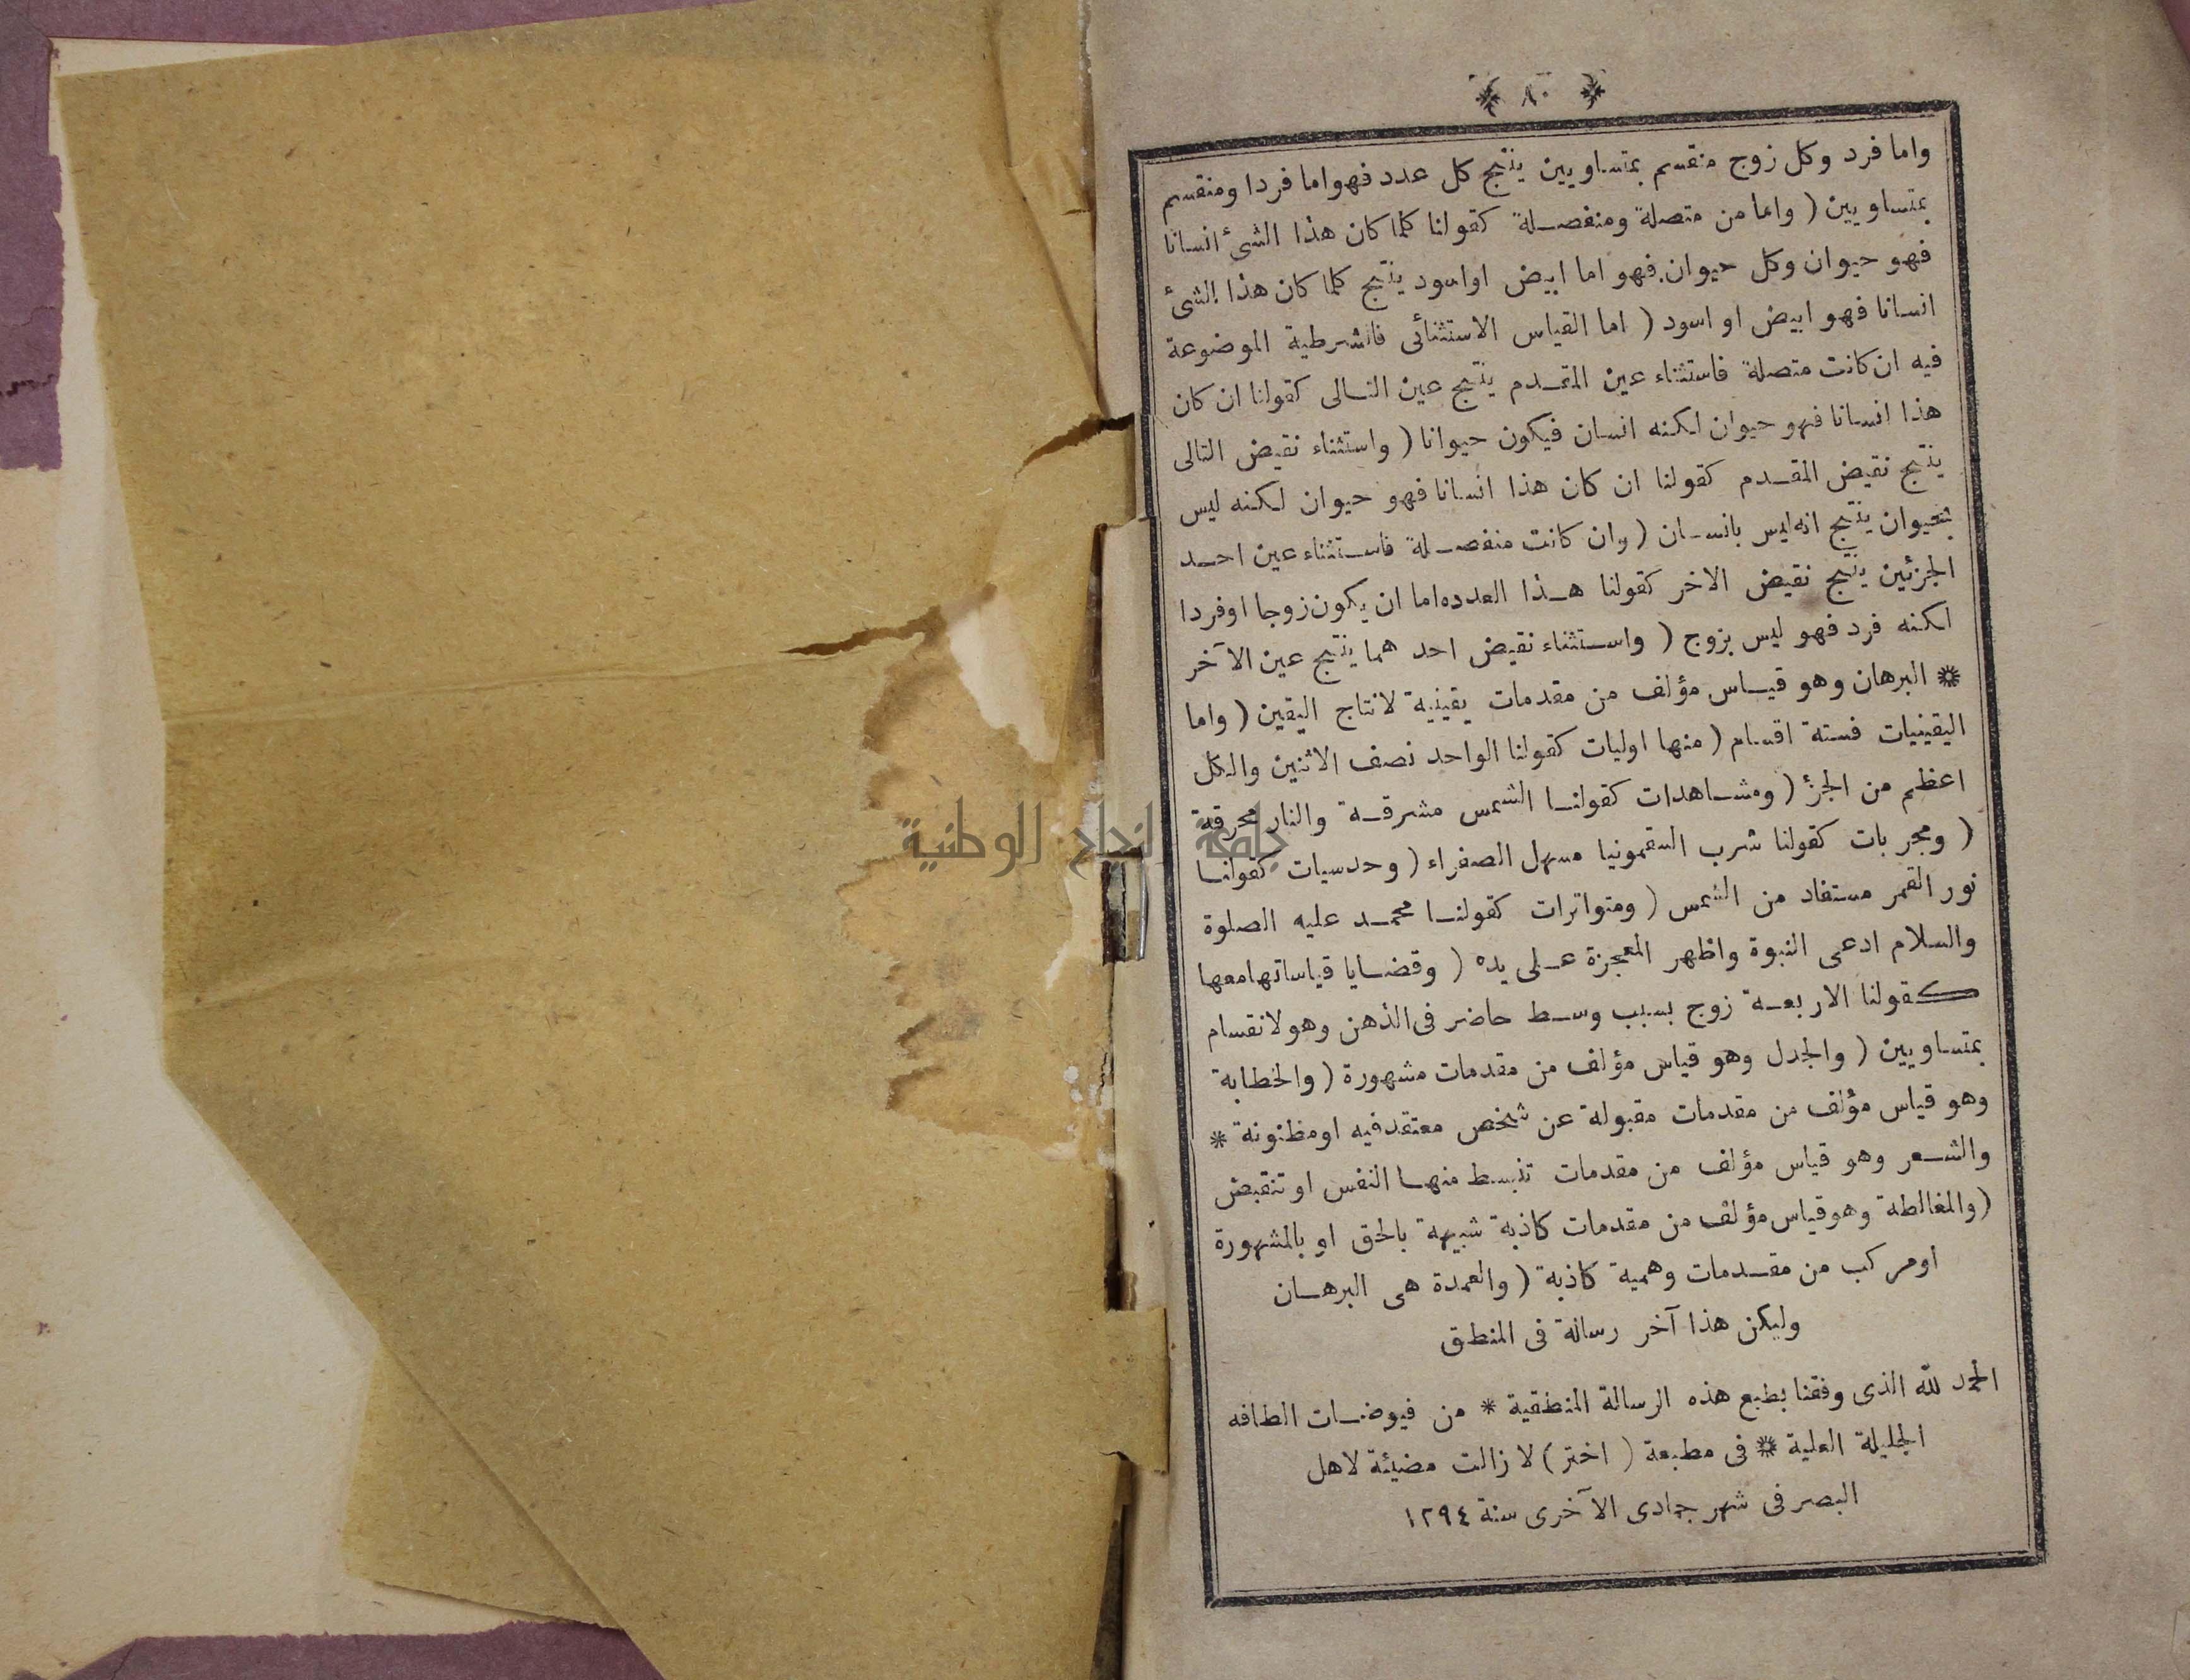 ٨٠
واما فرد وكل زوج منقسم بمتساويين ينتج كل عدد فهو اما فردا ومنقسم
بمتساويين ( واما من متصلة ومنفصلة كقولنا كلما كان هذا الشئ انسانا
فهو حيوان وكل حيوان فهو اما ابيض او اسود ينتج كلما كان هذا الشئ
انسانا فهو ابيض او اسود ( اما القياس الاستثنائى فالشرطية الموضوعة
فيه ان كانت متصلة فاستثناء عين المقدم ينتج عين التالى كقولنا ان كان
هذا انسانا فهو حيوان لكنه انسان فيكون حيوانا ( واستثناء نقيض التالى
ينتج نقيض المقدم كقولنا ان كان هذا انسانا فهو حيوان لكنه ليس
بحيوان ينتج انه ليس بانسان ( وان كانت منفصلة فاستثناء عين احد
الجزئين ينتج نقيض الاخر كقولنا هذا العدد اما ان يكون زوجا او فردا
لكنه فرد فهو ليس بزوج ( واستثناء نقيض احد هما ينتج عين الآخر
* البرهان وهو قياس مؤلف من مقدمات يقينية لانتاج اليقين ( واما
اليقينيات فستة اقسام ( منها اوليات كقولنا الواحد نصف الاثنين والكل
اعظم من الجزء ( ومشاهدات كقولنا الشمس مشرقة والنار محرقة
( ومجربات كقولنا شرب السقمونيا مسهل الصفراء ( وحدسيات كقولنا
نور القمر مستفاد من الشمس ( ومتواترات كقولنا محمد عليه الصلوة
والسلام ادعى النبوة واظهر المعجزة على يده ( وقضايا قياساتها معها
كقولنا الاربعة زوج بسبب وسط حاضر فى الذهن وهو لانقسام
بمتساويين ( والجدل وهو قياس مؤلف من مقدمات مشهورة ( والخطابة
وهو قياس مؤلف من مقدمات مقبولة عن شخص معتقد فيه او مظنونة *
والشعر وهو قياس مؤلف من مقدمات تنبسط منها النفس او تنقبض
( والمغالطة وهو قياس مؤلف من مقدمات كاذبة شبيهة بالحق او بالمشهورة
او مركب من مقدمات وهمية كاذبة ( والعمدة هى البرهان
وليكن هذا آخر رسالة فى المنطق
الحمد لله الذى وفقنا بطبع هذه الرسالة المنطقية * من فيوضات الطافه
الجليلة العلية * فى مطبعة ( اختر ) لا زالت مضيئة لاهل
البصر فى شهر جمادى الآخرى سنة ١٢٩٤
جامعة النجاح الوطنية